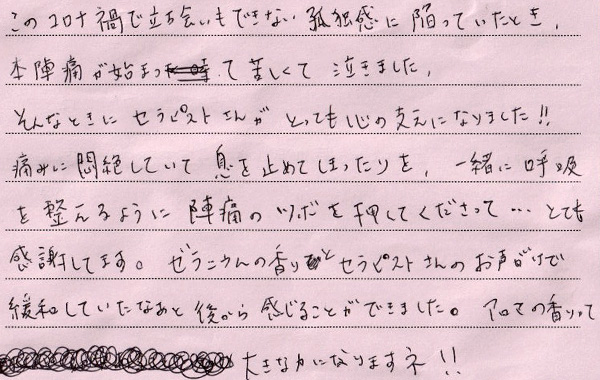 このコロナ禍で立ち会いもできない孤独感に陥っていたとき、
本陣痛が始まって苦しくて泣きました。
そんなときにセラピストさんがとっても心の支えになりました!!
痛みに悶絶していて息を止めてしまったりを、一緒に呼吸
を整えるように陣痛のツボを押してくださって…とても
感謝してます。ゼラニウムの香りとセラピストさんのお声がけで
緩和していたなあと後から感じることができました。アロマの香りって
大きな力になりますネ!!